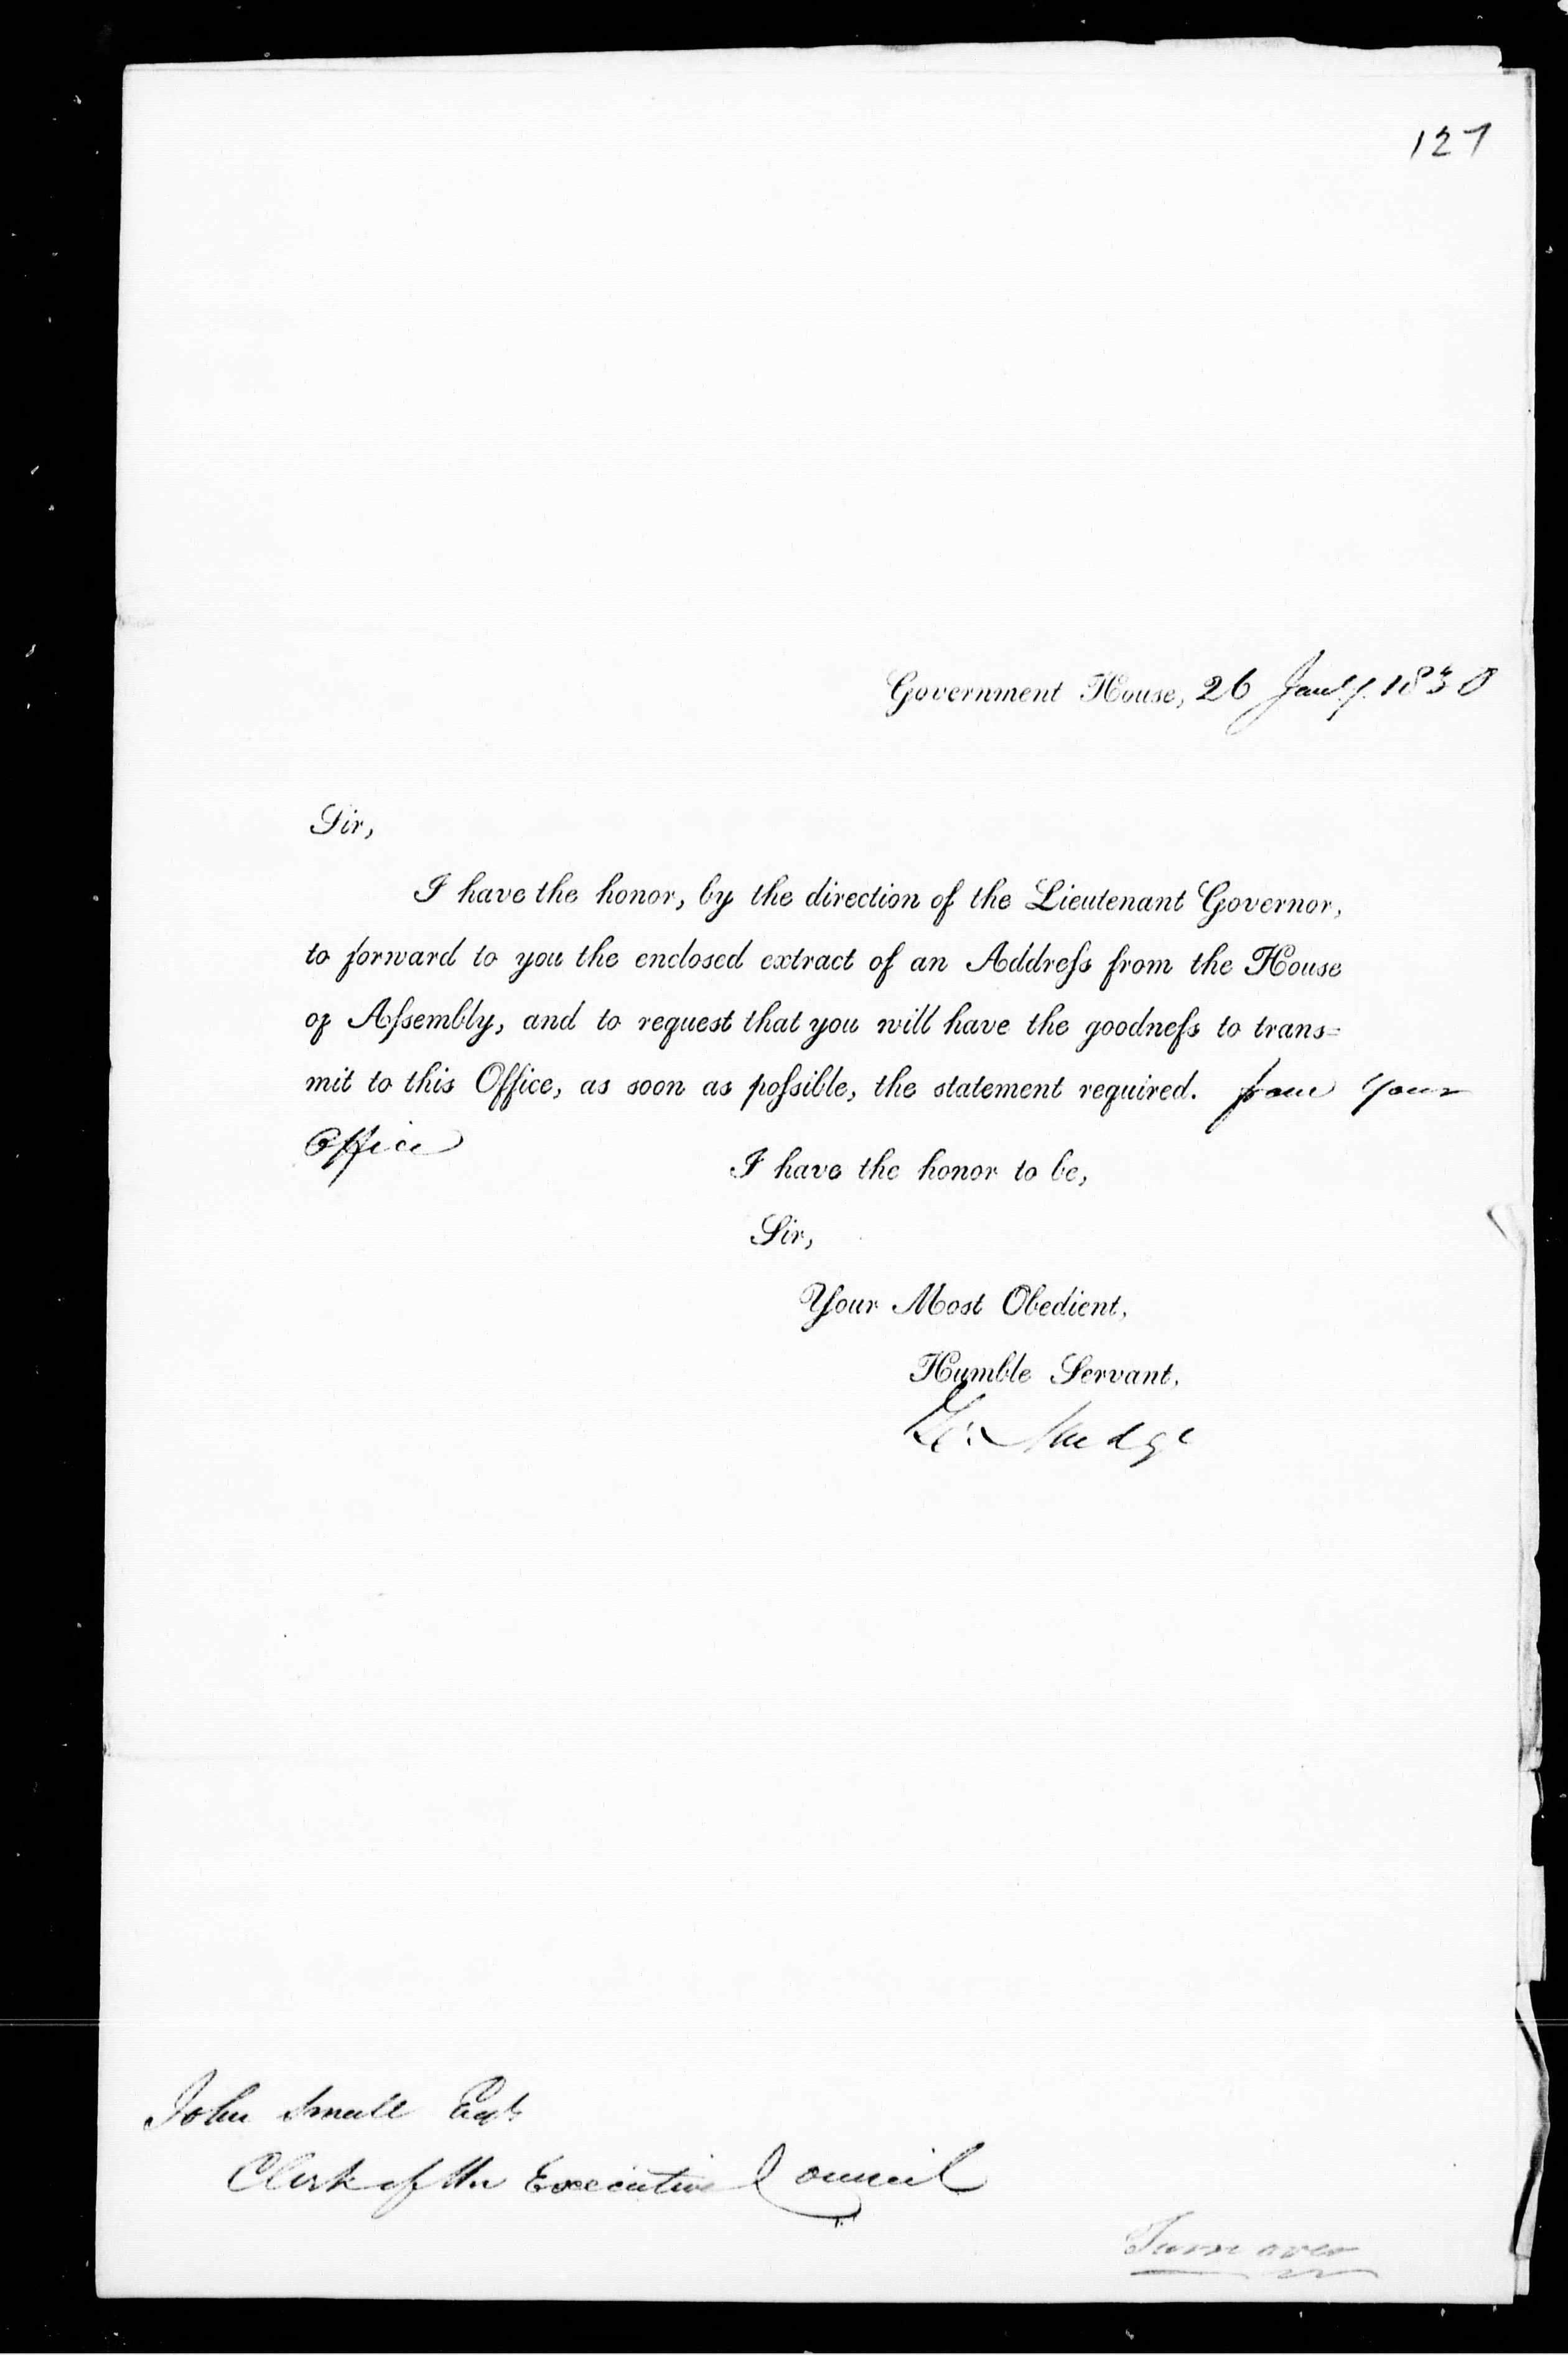 127
Government House, 26 Jany. 1830
Sir,
I have the honor, by the direction of the Lieutenant Governor,
to forward to you the enclosed extract of an Addreſs from the House
of Aſsembly, and to request that you will have the goodneſs to trans=
mit to this Office, as soon as poſsible, the statement required. from your
Office
I have the honor to be,
Sir,
Your Most Obedient,
Humble Servant,
Mudge
John Small Esqr.
Clerk of the Executive Council
Turn over